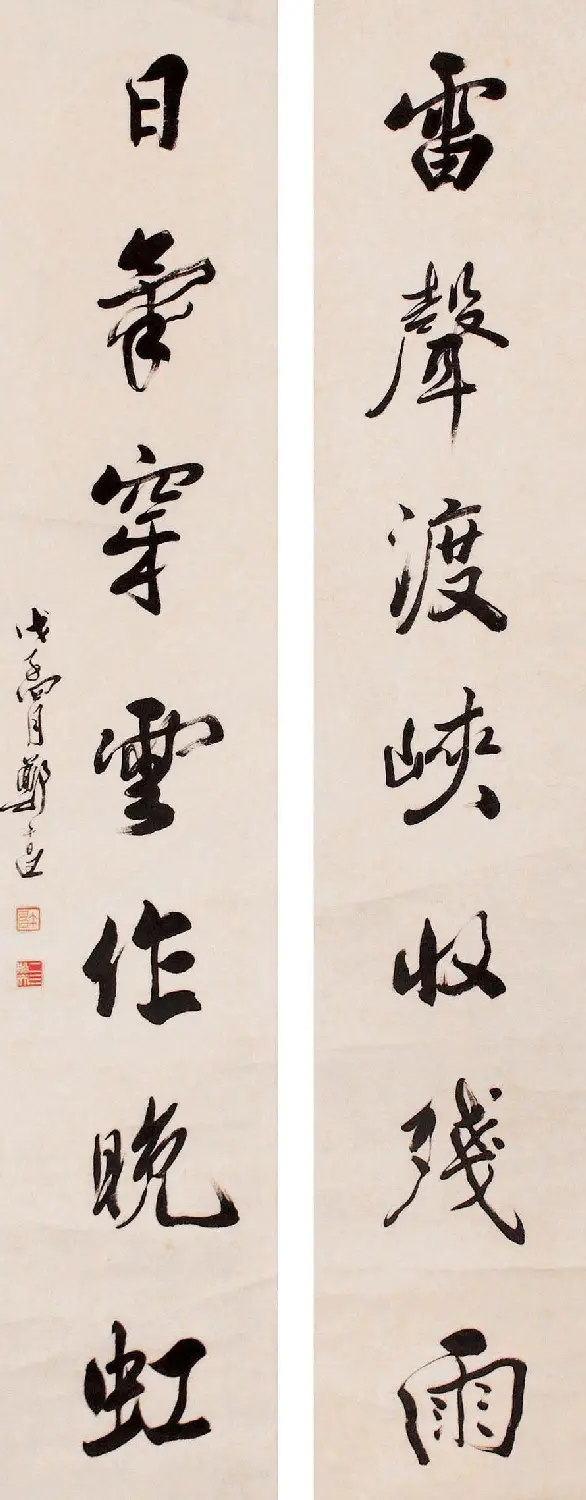 雷聲渡峽收殘雨
日氣穿雲作晚虹
戊子四月鄭午昌